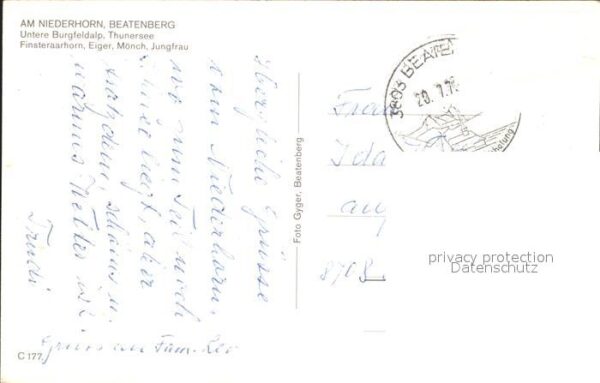 AM NIEDERHORN, BEATENBERG
Untere Burgfeldalp, Thunersee
Finsteraarhorn, Eiger, Mönch, Jungfrau
Herzliche Grüsse
vom Niederhorn,
wo zum Teil noch
Schnee liegt, aber
trotzdem schönes u.
warmes Wetter ist.
Trudi
Gruss an Fam.
C 177
Foto Gyger, Beatenberg
3803 BEATEN
20. 7. 7
Frau
Ida
8708
privacy protection
Datenschutz